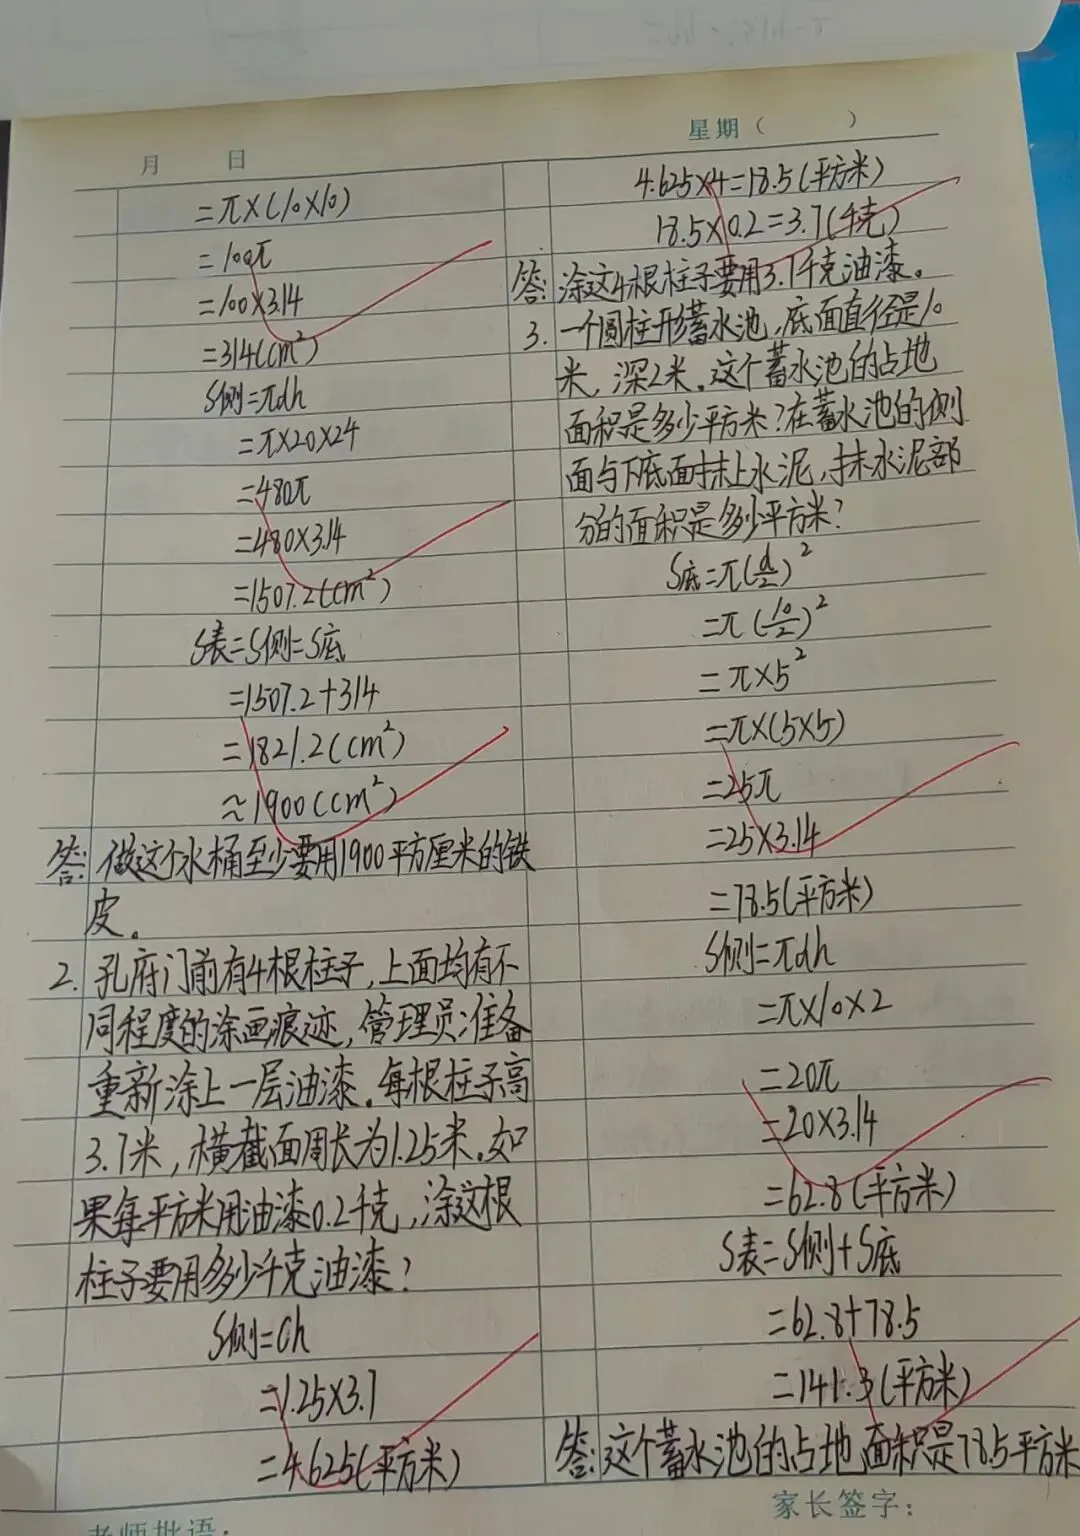 月 日
星期（ ）
=π×(10×10)
=100π
=100×3.14
=314(cm²)
S侧=πdh
=π×20×24
=480π
=480×3.14
=1507.2(cm²)
S表=S侧=S底
=1507.2+314
=1821.2(cm²)
≈1900(cm²)
答:做这个水桶至少要用1900平方厘米的铁
皮。
2.孔府门前有4根柱子,上面均有不
同程度的涂画痕迹,管理员准备
重新涂上一层油漆。每根柱子高
3.7米,横截面周长为1.25米。如
果每平方米用油漆0.2千克,涂这根
柱子要用多少千克油漆?
S侧=Ch
=1.25×3.7
=4.625(平方米)
4.625×4=18.5(平方米)
18.5×0.2=3.7(千克)
答:涂这4根柱子要用3.7千克油漆。
3.一个圆柱形蓄水池,底面直径是10
米,深2米。这个蓄水池的占地
面积是多少平方米?在蓄水池的侧
面与下底面抹上水泥,抹水泥部
分的面积是多少平方米?
S底=π(d/2)²
=π(10/2)²
=π×5²
=π×(5×5)
=25π
=25×3.14
=78.5(平方米)
S侧=πdh
=π×10×2
=20π
=20×3.14
=62.8(平方米)
S表=S侧+S底
=62.8+78.5
=141.3(平方米)
答:这个蓄水池的占地面积是78.5平方米
家长签字：
老师批语：